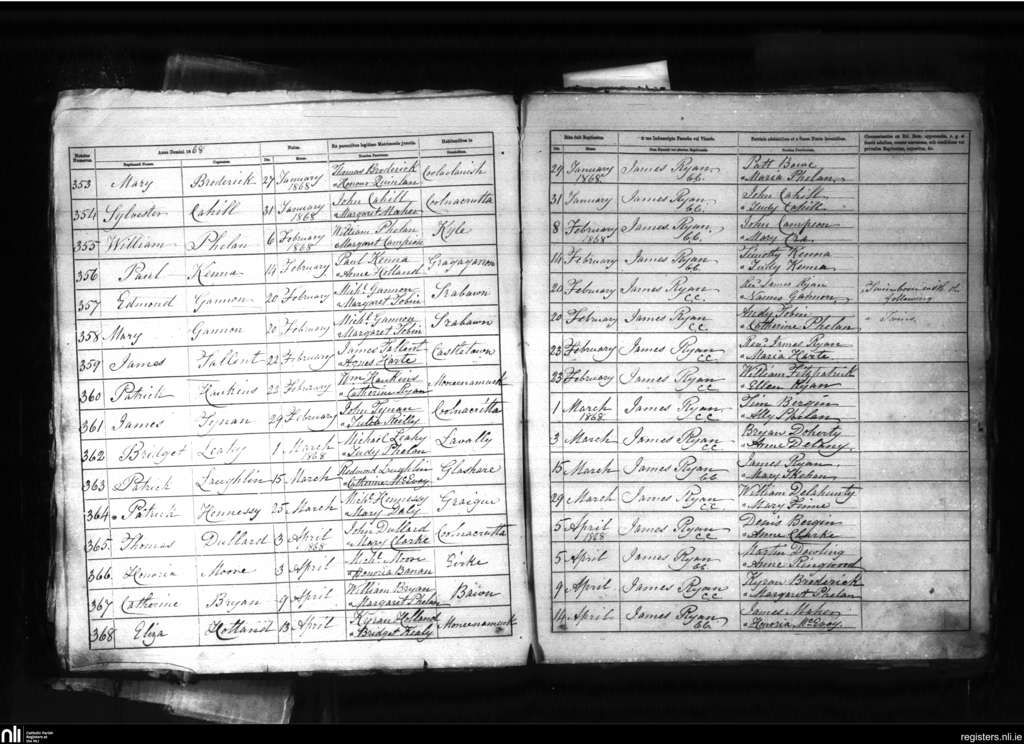 Anno Domini 1868
Natus.
Ex parentibus legitimo Matrimonio junctis.
Habitantibus in
Numerus
Baptismi Nomen.
Cognomen.
Die.
Mense.
353 Mary Broderick 27 January 1868 Thomas Broderick
& Honour Quinlan
354 Sylvester Cahill 31 January 1868 John Cahill Coolnacrutta
& Margaret Maher
355 William Phelan 6 February 1868 William Phelan Kyle
& Margaret Campion
356 Paul Kenna 14 February Paul Kenna
& Anne Holland
357 Edmond Gannon 20 February Michl. Gannon Srabawn
& Margaret Tobin
358 Mary Gannon 20 February Michl. Gannon Srabawn
Margaret Tobin
359 James Tallent 22 February James Tallent Castletown
& Agnes Harte
360 Patrick Hawkins 23 February Wm Hawkins
& Catherine Ryan
361 James Tynan 29 February John Tynan Coolnacrutta
& Reilly
362 Bridget Leahy 1 March 1868 Michael Leahy Lavally
& Judy Phelan
363 Patrick Loughlin 15 March Redmond Loughlin Glashare
& Catherine McEvoy
364 Patrick Hennessy 25 March Michl. Hennessy Graigue
& Mary Daly
365 Thomas Dullard 3 April 1868 John Dullard Coolnacrutta
& Mary Clarke
366 Honoria Moore 3 April Michl. Moore Girke
& Honoria Banan
367 Catherine Bryan 9 April William Bryan Bawn
& Margaret Phelan
368 Eliza Holland 13 April Kyran Holland
& Bridget Fealy
Die.
Mense.
29 January 1868 James Ryan CC. Patt Bowe
& Maria Phelan
31 January James Ryan CC. John Cahill
& Judy Cahill
8 February 1868 James Ryan CC. John Campion
& Mary
14 February James Ryan CC. Timothy Kenna
& Judy Kenna
20 February James Ryan CC. Revd. James Ryan Twin born with the
Gannon following
20 February James Ryan CC. Andy Tobin Twins.
& Catherine Phelan
23 February James Ryan CC. Revd. James Ryan
& Maria Harte
23 February James Ryan CC. William Fitzpatrick
& Ellen Ryan
1 March 1868 James Ryan CC. Tim Bergin
& Ally Phelan
3 March James Ryan CC. Bryan Doherty
& Anne Delany
15 March James Ryan CC. James Ryan
& Mary Phelan
29 March James Ryan CC. William Delahunty
& Mary
5 April 1868 James Ryan CC. Denis Bergin
& Anne Clarke
5 April James Ryan CC. Martin Dowling
& Anne Ringwood
9 April James Ryan CC. Kyran Broderick
& Margaret Phelan
14 April James Ryan CC. James Maher
& Honoria McEvoy
nli
Catholic Parish
Registers at
the NLI
registers.nli.ie